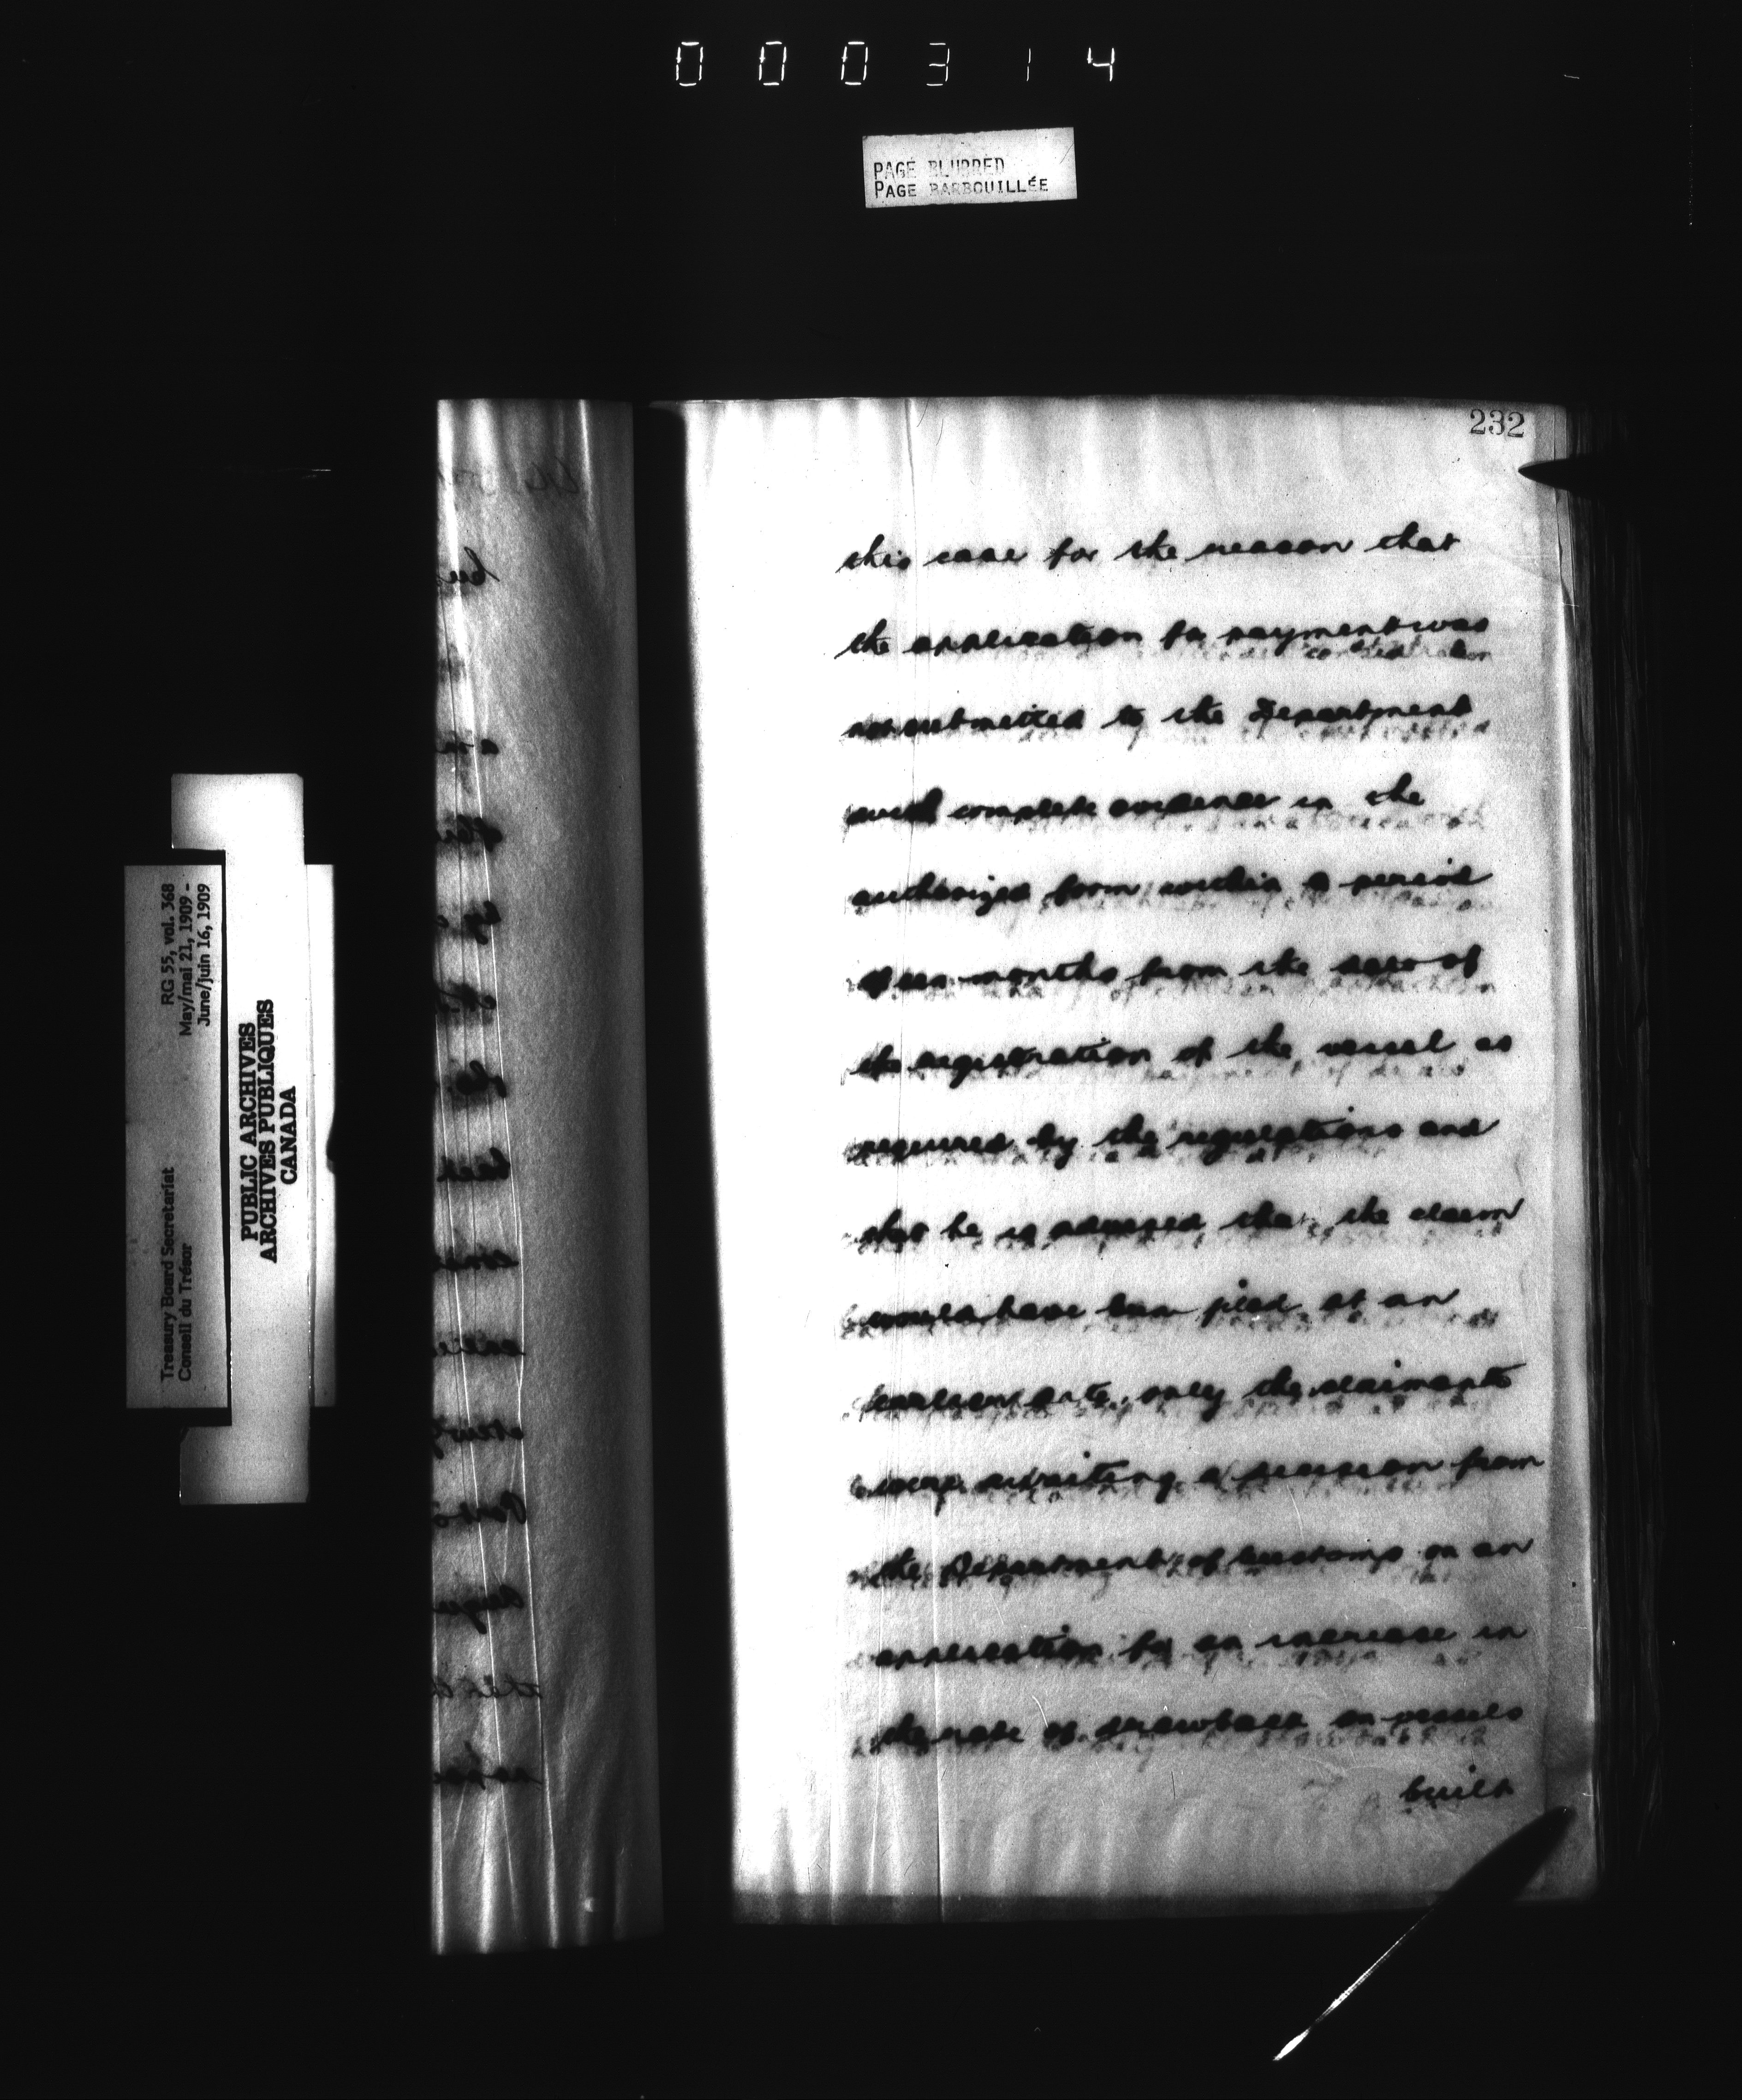 000314
PAGE BLURRED
PAGE BARBOUILLÉE
RG 55, vol. 368
May/mai 21, 1909 -
June/juin 16, 1909
Treasury Board Secretariat
Conseil du Trésor
PUBLIC ARCHIVES
ARCHIVES PUBLIQUES
CANADA
232
this case for the reason that
the application for payment was
not submitted to the Department
with complete evidence in the
authorized form within a period
of six months from the date of
the registration of the vessel as
required by the regulations and
that he is advised that the claim
would have been filed at an
earlier date, only the claimants
were awaiting a decision from
the Department of Customs on an
application for an increase in
the rate of drawback on vessels
built